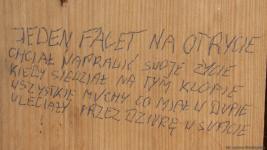 JEDEN FACET NA OTRYCIE
CHCIAŁ NAPRAWIĆ SWOJE ŻYCIE
KIEDY SIEDZIAŁ NA TYM KLOPIE
WSZYSTKIE MUCHY CO MIAŁ W DUPIE
ULECIAŁY PRZEZ DZIURĘ W SUFICIE